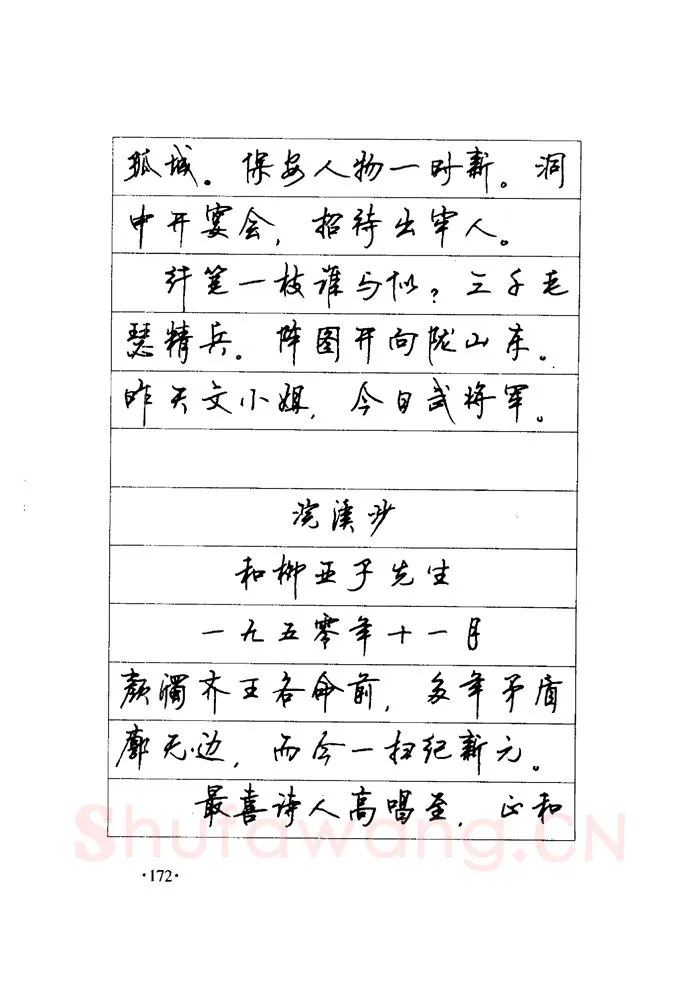 孤城。保安人物一时新。洞
中开宴会，招待出牢人。
纤笔一枝谁与似？三千毛
瑟精兵。阵图开向陇山东。
昨天文小姐，今日武将军。
浣溪沙
和柳亚子先生
一九五零年十一月
颜斶齐王各命前，多年矛盾
廓无边，而今一扫纪新元。
最喜诗人高唱至，正和
Shufawang.CN
·172·